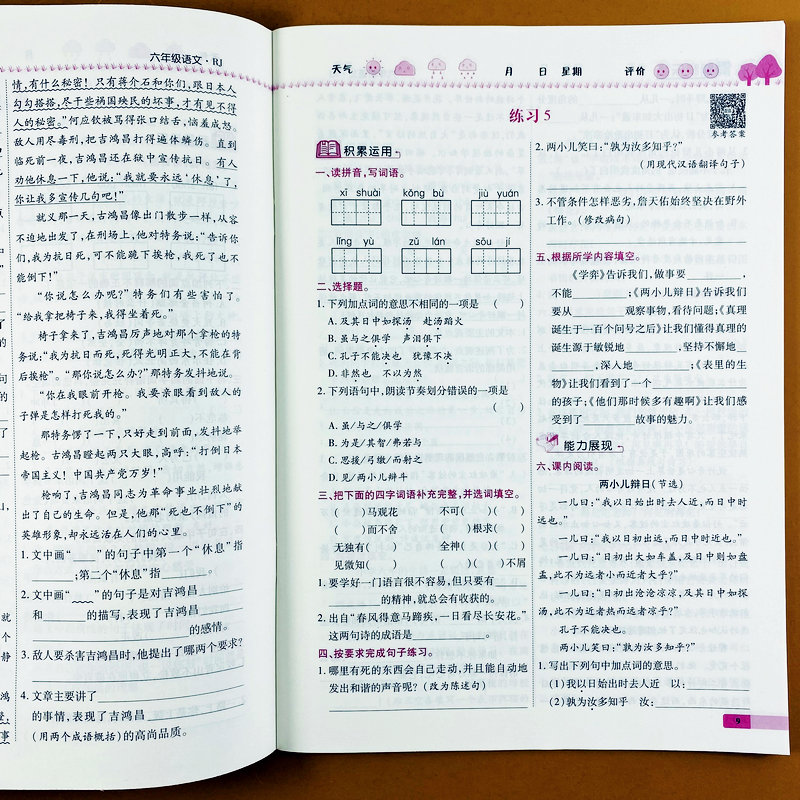 六年级语文·RJ
情,有什么秘密！只有蒋介石和你们,跟日本人
勾勾搭搭,尽干些祸国殃民的坏事,才有见不得
人的秘密。”何应钦被骂得张口结舌,恼羞成怒。
敌人用尽毒刑,把吉鸿昌打得遍体鳞伤。直到
临死前一夜,吉鸿昌还在狱中宣传抗日。有人
劝他休息一下,他说:“我就要永远‘休息’了,
你让我多宣传几句吧！”
就义那一天,吉鸿昌像出门散步一样,从容
不迫地出发了,在刑场上,他对特务说:“告诉你
们,我为抗日死,可不能跪下挨枪,我死了也不
能倒下！”
“你说怎么办呢?”特务们有些害怕了。
“给我拿把椅子来,我得坐着死。”
椅子拿来了,吉鸿昌厉声地对那个拿枪的特
务说:“我为抗日而死,死得光明正大,不能在背
后挨枪”。“那你说怎么办?”那特务发抖地说。
“你在我眼前开枪。我要亲眼看到敌人的
子弹是怎样打死我的。”
那特务愣了一下,只好走到前面,发抖地举
起枪。吉鸿昌瞪起两只大眼,高呼:“打倒日本
帝国主义！中国共产党万岁！”
枪响了,吉鸿昌同志为革命事业壮烈地献
出了自己的生命。但是,他那“死也不倒下”的
英雄形象,却永远活在人们的心里。
1. 文中画“____”的句子中第一个“休息”指
______;第二个“休息”指______。
2. 文中画“﹏﹏”的句子是对吉鸿昌______
和______的描写,表现了吉鸿昌______
______的感情。
3. 敌人要杀害吉鸿昌时,他提出了哪两个要求?
4. 文章主要讲了______
的事情,表现了吉鸿昌______
(用两个成语概括)的高尚品质。
天气 月 日 星期 评价
练习5
参考答案
积累运用
一、读拼音,写词语。
xī shuài kǒng bù jiù yuán
lǐng yù zǔ lán sōu jí
二、选择题。
1. 下列加点词的意思不相同的一项是 ( )
A. 及其日中如探汤 赴汤蹈火
B. 虽与之俱学 声泪俱下
C. 孔子不能决也 犹豫不决
D. 非然也 不以为然
2. 下列语句中,朗读节奏划分错误的一项是
( )
A. 虽/与之/俱学
B. 为是/其智/弗若与
C. 思援/弓缴/而射之
D. 见/两小儿辩斗
三、把下面的四字词语补充完整,并选词填空。
( )马观花 不可( )( )
( )而不舍 ( )根求( )
无独有( ) 全神( )( )
见微知( ) ( )( )不屑
1. 要学好一门语言很不容易,但只要有____
________的精神,就总会有收获的。
2. 出自“春风得意马蹄疾,一日看尽长安花。”
这两句诗的成语是________。
四、按要求完成句子练习。
1. 哪里有死的东西会自己走动,并且能自动地
发出和谐的声音呢？(改为陈述句)
2. 两小儿笑曰:“孰为汝多知乎?”
(用现代汉语翻译句子)
3. 不管条件怎样恶劣,詹天佑始终坚决在野外
工作。(修改病句)
五、根据所学内容填空。
《学弈》告诉我们,做事要______,
不能______;《两小儿辩日》告诉我们
要从______观察事物,看待问题;《真理
诞生于一百个问号之后》让我们懂得真理的
诞生源于敏锐地______,坚持不懈地__
____,深入地______;《表里的生
物》让我们看到了一个__________
的孩子;《他们那时候多有趣啊》让我们感
受到了______故事的魅力。
能力展现
六、课内阅读。
两小儿辩日(节选)
一儿曰:“我以日始出时去人近,而日中时
远也。”
一儿曰:“我以日初出远,而日中时近也。”
一儿曰:“日初出大如车盖,及日中则如盘
盂,此不为远者小而近者大乎?”
一儿曰:“日初出沧沧凉凉,及其日中如探
汤,此不为近者热而远者凉乎?”
孔子不能决也。
两小儿笑曰:“孰为汝多知乎?”
1. 写出下列句中加点词的意思。
(1)我以日始出时去人近 以:______
(2)孰为汝多知乎 汝:______
9